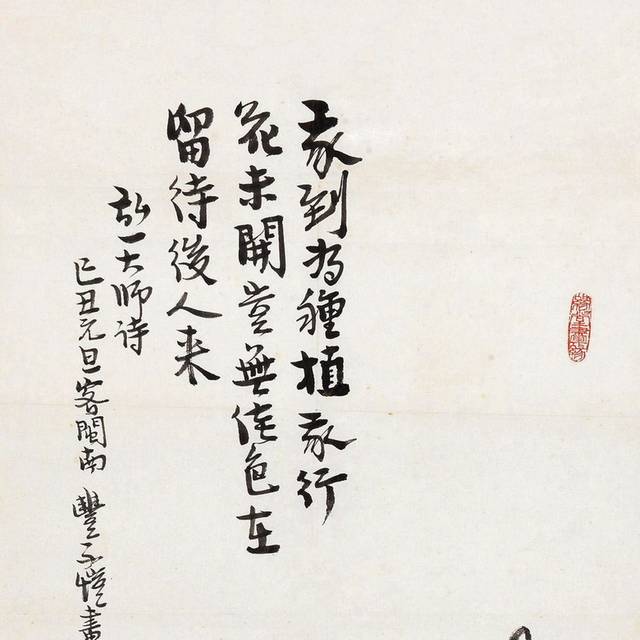 我到为種植我行
花未開豈無佳色在
留待後人来
弘一大師诗
己丑元旦客閩南 豐子愷畫